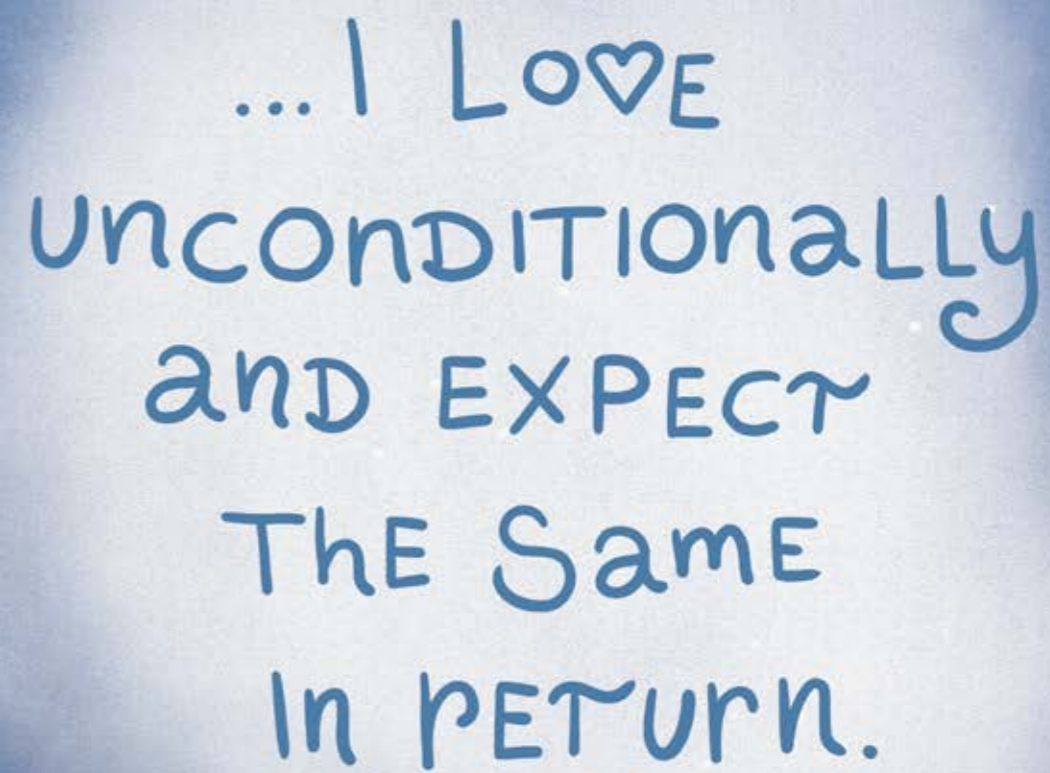 ...I LO♡E
unconDITIonaLLy
anD EXPECT
ThE SamE
In rETurn.